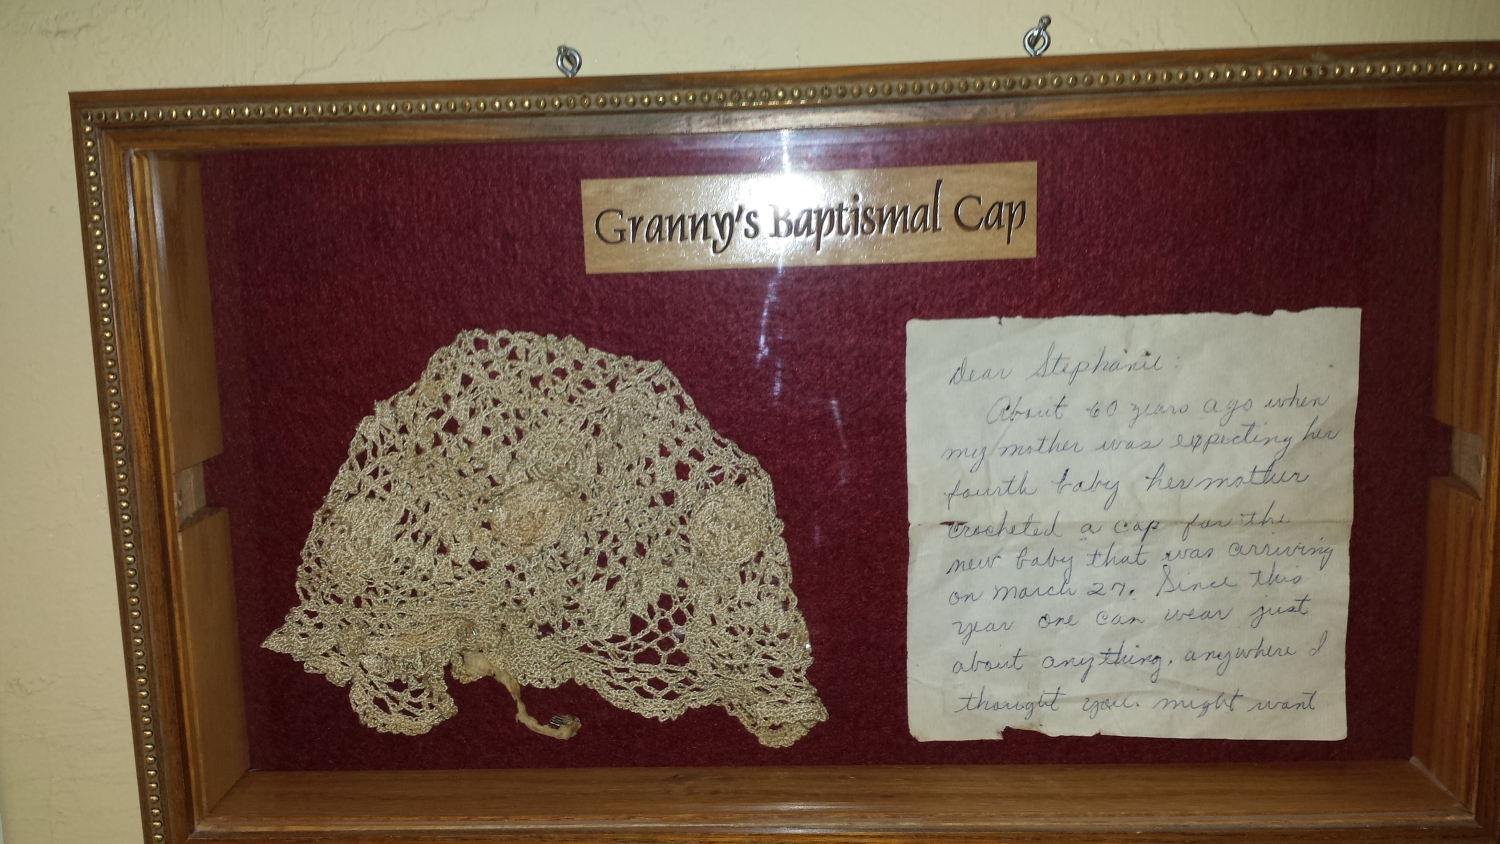 Granny's Baptismal Cap
Dear Stephanie:
About 60 years ago when
my mother was expecting her
fourth baby her mother
crocheted a cap for the
new baby that was arriving
on March 27. Since this
year one can wear just
about anything, anywhere I
thought you might want